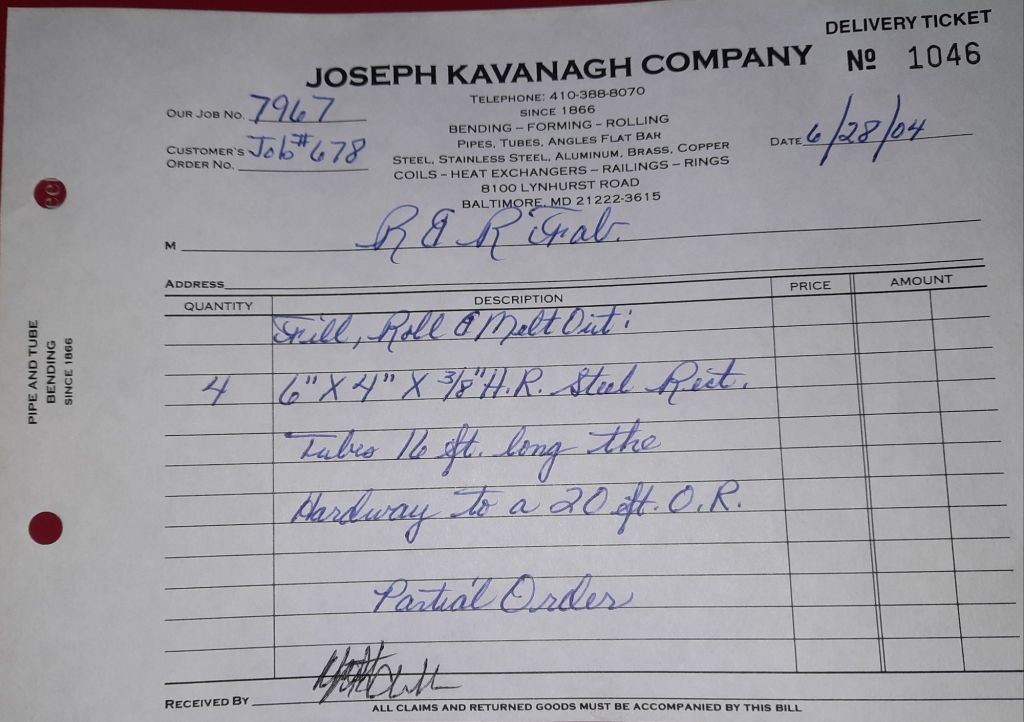 DELIVERY TICKET
JOSEPH KAVANAGH COMPANY
Nº 1046
TELEPHONE: 410-388-8070
SINCE 1866
BENDING – FORMING – ROLLING
PIPES, TUBES, ANGLES FLAT BAR
STEEL, STAINLESS STEEL, ALUMINUM, BRASS, COPPER
COILS – HEAT EXCHANGERS – RAILINGS – RINGS
8100 LYNHURST ROAD
BALTIMORE, MD 21222-3615
OUR JOB NO. 7967
CUSTOMER'S ORDER NO. Job #678
DATE 6/28/04
M R & R Fab.
ADDRESS
QUANTITY DESCRIPTION PRICE AMOUNT
Fill, Roll & Melt Out:
4 6" X 4" X 3/8" H.R. Steel Rect.
Tubes 16 ft. long the
Hardway to a 20 ft. O.R.
Partial Order
RECEIVED BY
ALL CLAIMS AND RETURNED GOODS MUST BE ACCOMPANIED BY THIS BILL
PIPE AND TUBE
BENDING
SINCE 1866